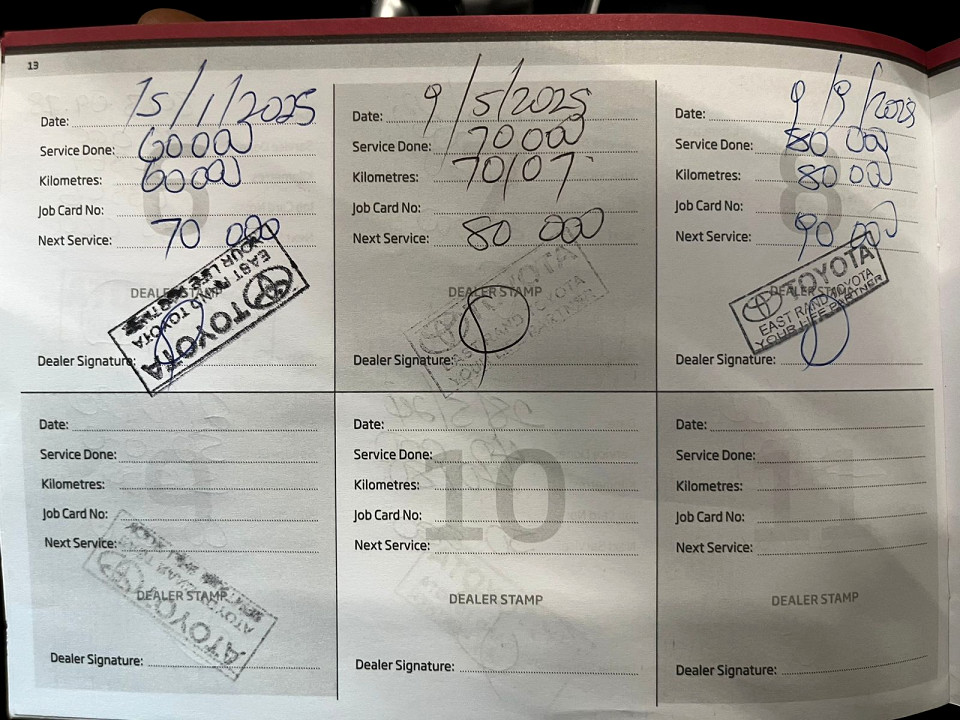 13
Date: 15/1/2025
Service Done: 60 000
Kilometres: 60 000
Job Card No:
Next Service: 70 000
DEALER STAMP
TOYOTA
EAST RAND TOYOTA
YOUR LIFE PARTNER
Dealer Signature:
Date: 9/5/2025
Service Done: 70 000
Kilometres: 70107
Job Card No:
Next Service: 80 000
DEALER STAMP
TOYOTA
EAST RAND TOYOTA
YOUR LIFE PARTNER
Dealer Signature:
8
Date: 9/9/2025
Service Done: 80 000
Kilometres: 80 000
Job Card No:
Next Service: 90 000
DEALER STAMP
TOYOTA
EAST RAND TOYOTA
YOUR LIFE PARTNER
Dealer Signature:
9
Date:
Service Done:
Kilometres:
Job Card No:
Next Service:
DEALER STAMP
Dealer Signature:
10
Date:
Service Done:
Kilometres:
Job Card No:
Next Service:
DEALER STAMP
Dealer Signature:
11
Date:
Service Done:
Kilometres:
Job Card No:
Next Service:
DEALER STAMP
Dealer Signature: